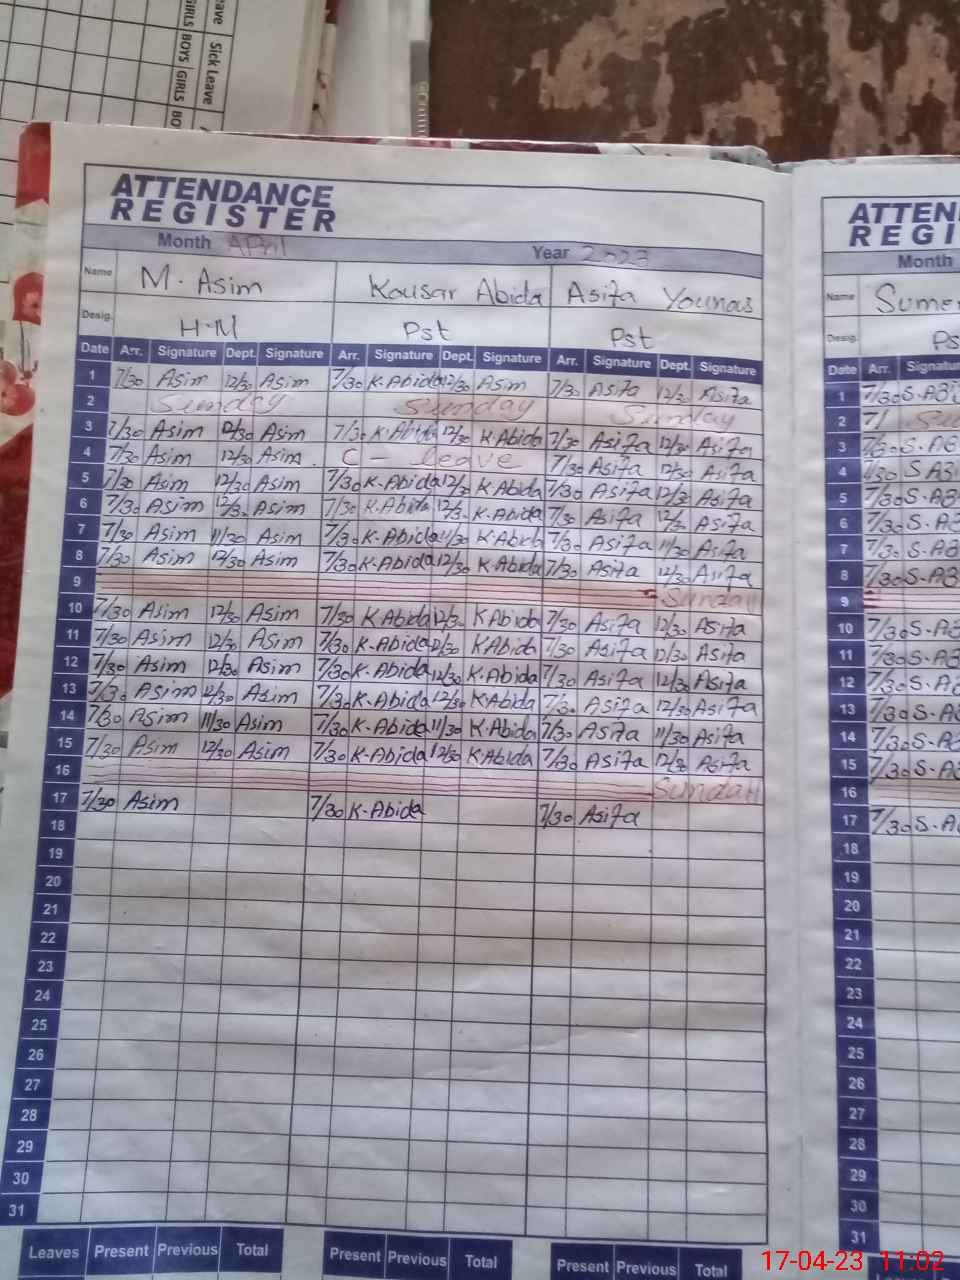 ave Sick Leave
GIRLS BOYS GIRLS BO
ATTENDANCE
REGISTER
Month April Year 2023
Name M. Asim Kousar Abida Asifa Younous
Desig. H.M Pst Pst
Date Arr. Signature Dept. Signature Arr. Signature Dept. Signature Arr. Signature Dept. Signature
1 7/30 Asim 12/30 Asim 7/30 K.Abida 12/30 Asim 7/30 Asifa 12/30 Asifa
2 Sunday Sunday Sunday
3 7/30 Asim 12/30 Asim 7/30 K.Abida 12/30 K.Abida 7/30 Asifa 12/30 Asifa
4 7/30 Asim 12/30 Asim. C - leave 7/30 Asifa 12/30 Asifa
5 7/30 Asim 12/30 Asim 7/30 K.Abida 12/30 K.Abida 7/30 Asifa 12/30 Asifa
6 7/30 Asim 12/30 Asim 7/30 K.Abida 12/30 K.Abida 7/30 Asifa 12/30 Asifa
7 7/30 Asim 11/30 Asim 7/30 K.Abida 11/30 K.Abida 7/30 Asifa 11/30 Asifa
8 7/30 Asim 12/30 Asim 7/30 K.Abida 12/30 K.Abida 7/30 Asifa 12/30 Asifa
9 Sunday
10 7/30 Asim 12/30 Asim 7/30 K Abida 12/30 K Abida 7/30 Asifa 12/30 Asifa
11 7/30 Asim 12/30 Asim 7/30 K.Abida 12/30 K.Abida 7/30 Asifa 12/30 Asifa
12 7/30 Asim 12/30 Asim 7/30 K.Abida 12/30 K.Abida 7/30 Asifa 12/30 Asifa
13 7/30 Asim 12/30 Asim 7/30 K.Abida 12/30 K.Abida 7/30 Asifa 12/30 Asifa
14 7/30 Asim 11/30 Asim 7/30 K.Abida 11/30 K.Abida 7/30 Asifa 11/30 Asifa
15 7/30 Asim 12/30 Asim 7/30 K.Abida 12/30 K.Abida 7/30 Asifa 12/30 Asifa
16 Sunday
17 7/30 Asim 7/30 K.Abida 7/30 Asifa
18
19
20
21
22
23
24
25
26
27
28
29
30
31
Leaves Present Previous Total Present Previous Total Present Previous Total
ATTEN
REGI
Month
Name Sume
Desig. Ps
Date Arr. Signatu
1 7/30 S.AB
2 7/ Su
3 7/30 S.AB
4 7/30 S AB
5 7/30 S.AB
6 7/30 S.AB
7 7/30 S.AB
8 7/30 S.AB
9
10 7/30 S.AB
11 7/30 S.AB
12 7/30 S.AB
13 7/30 S.AB
14 7/30 S.AB
15 7/30 S.AB
16
17 7/30 S.A
18
19
20
21
22
23
24
25
26
27
28
29
30
31
17-04-23 11:02